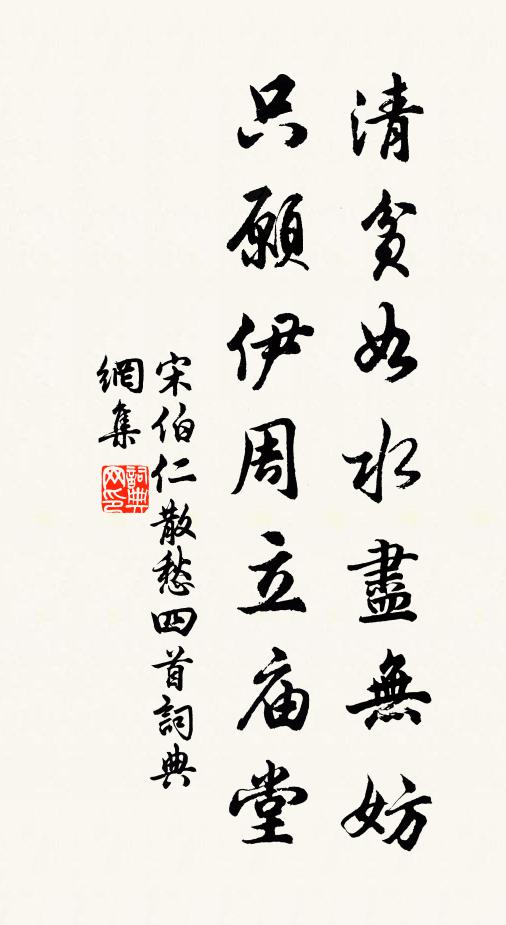 清貧如水盡無妨
只願伊周立庙堂
宋伯仁散愁四首詞典
網集
詞典網印